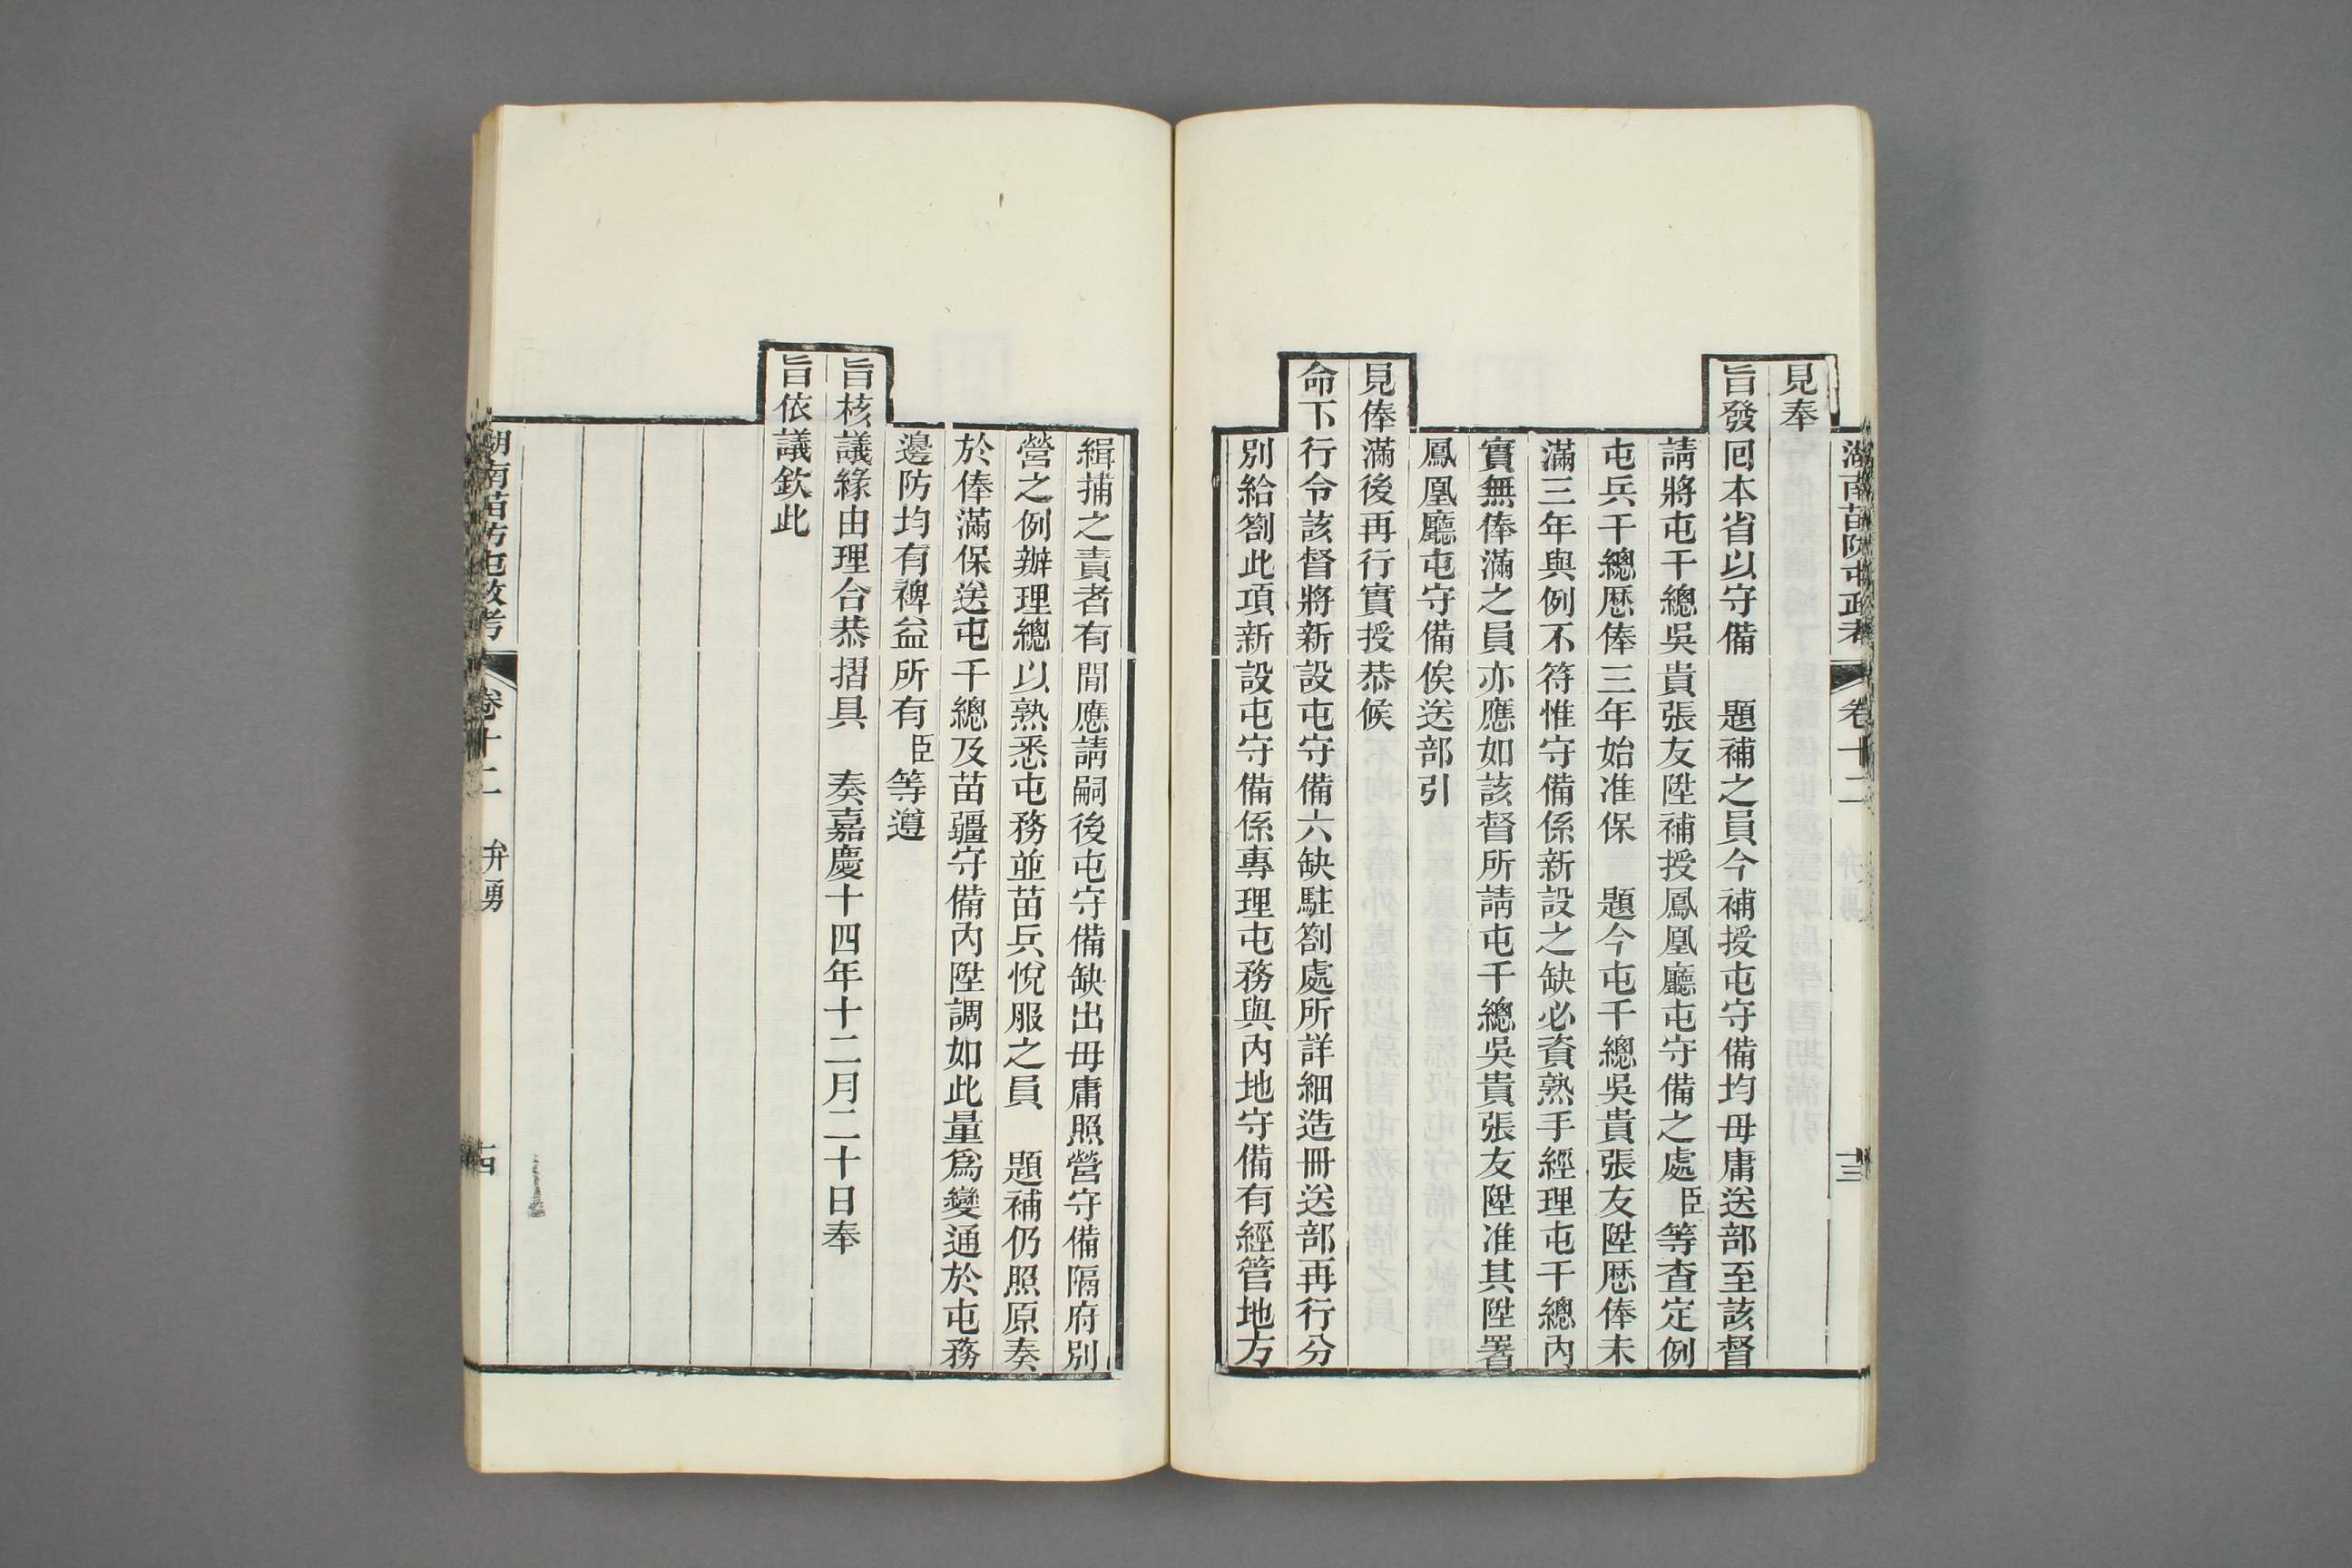 湖南苗防屯政考 卷十二 弁勇 十三
見奉
旨發回本省以守備 題補之員今補授屯守備均毋庸送部至該督
請將屯千總吳貴張友陞補授鳳凰廳屯守備之處臣等查定例
屯兵千總歷俸三年始准保 題今屯千總吳貴張友陞歷俸未
滿三年與例不符惟守備係新設之缺必資熟手經理屯千總內
實無俸滿之員亦應如該督所請屯千總吳貴張友陞准其陞署
鳳凰廳屯守備俟送部引
見俸滿後再行實授恭候
命下行令該督將新設屯守備六缺駐劄處所詳細造冊送部再行分
別給劄此項新設屯守備係專理屯務與內地守備有經管地方
緝捕之責者有間應請嗣後屯守備缺出毋庸照營守備隔府別
營之例辦理總以熟悉屯務並苗兵悅服之員 題補仍照原奏
於俸滿保送屯千總及苗疆守備內陞調如此量為變通於屯務
邊防均有裨益所有臣等遵
旨核議緣由理合恭摺具 奏嘉慶十四年十二月二十日奉
旨依議欽此
湖南苗防屯政考 卷十二 弁勇 十四